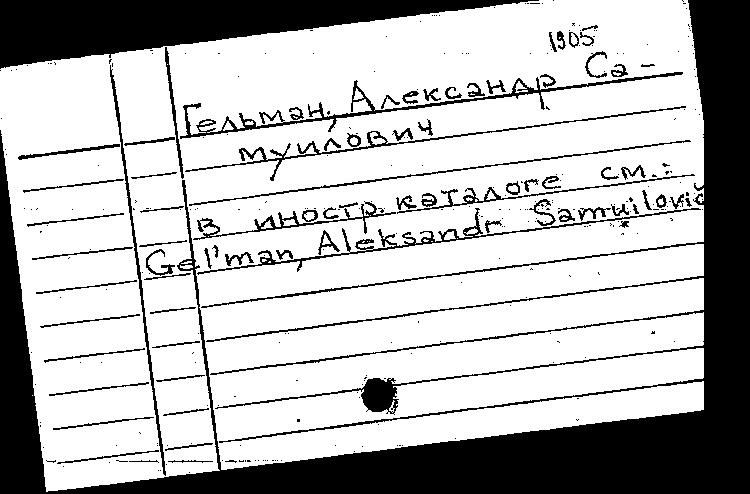 1905
Гельман, Александр Са-
муилович
в иностр. каталоге см.:
Gel'man, Aleksandr Samuilovič